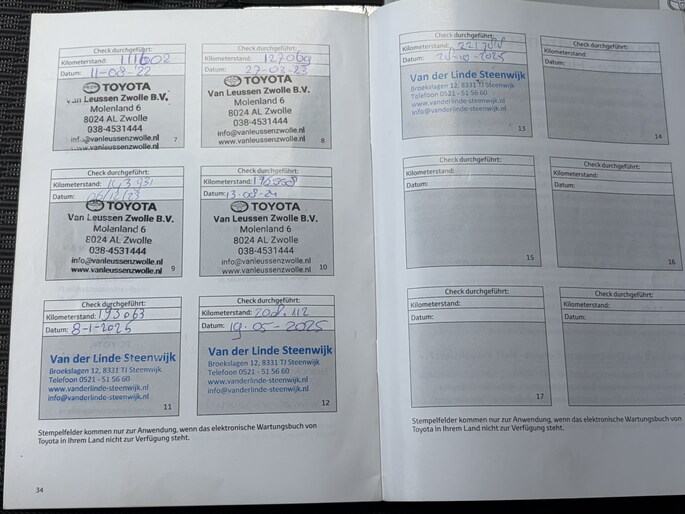 Check durchgeführt:
Kilometerstand: 111602
Datum: 11-08-22
TOYOTA
Van Leussen Zwolle B.V.
Molenland 6
8024 AL Zwolle
038-4531444
info@vanleussenzwolle.nl
www.vanleussenzwolle.nl
7
Check durchgeführt:
Kilometerstand: 127069
Datum: 27-03-23
TOYOTA
Van Leussen Zwolle B.V.
Molenland 6
8024 AL Zwolle
038-4531444
info@vanleussenzwolle.nl
www.vanleussenzwolle.nl
8
Check durchgeführt:
Kilometerstand:
Datum:
TOYOTA
Van Leussen Zwolle B.V.
Molenland 6
8024 AL Zwolle
038-4531444
info@vanleussenzwolle.nl
www.vanleussenzwolle.nl
9
Check durchgeführt:
Kilometerstand:
Datum: 13-08-24
TOYOTA
Van Leussen Zwolle B.V.
Molenland 6
8024 AL Zwolle
038-4531444
info@vanleussenzwolle.nl
www.vanleussenzwolle.nl
10
Check durchgeführt:
Kilometerstand: 193063
Datum: 8-1-2025
Van der Linde Steenwijk
Broekslagen 12, 8331 TJ Steenwijk
Telefoon 0521 - 51 56 60
www.vanderlinde-steenwijk.nl
info@vanderlinde-steenwijk.nl
11
Check durchgeführt:
Kilometerstand: 208.112
Datum: 19-05-2025
Van der Linde Steenwijk
Broekslagen 12, 8331 TJ Steenwijk
Telefoon 0521 - 51 56 60
www.vanderlinde-steenwijk.nl
info@vanderlinde-steenwijk.nl
12
Stempelfelder kommen nur zur Anwendung, wenn das elektronische Wartungsbuch von
Toyota in Ihrem Land nicht zur Verfügung steht.
34
Check durchgeführt:
Kilometerstand:
Datum:
Van der Linde Steenwijk
Broekslagen 12, 8331 TJ Steenwijk
Telefoon 0521 - 51 56 60
www.vanderlinde-steenwijk.nl
info@vanderlinde-steenwijk.nl
13
Check durchgeführt:
Kilometerstand:
Datum:
14
Check durchgeführt:
Kilometerstand:
Datum:
15
Check durchgeführt:
Kilometerstand:
Datum:
16
Check durchgeführt:
Kilometerstand:
Datum:
17
Check durchgeführt:
Kilometerstand:
Datum:
Stempelfelder kommen nur zur Anwendung, wenn das elektronische Wartungsbuch von
Toyota in Ihrem Land nicht zur Verfügung steht.